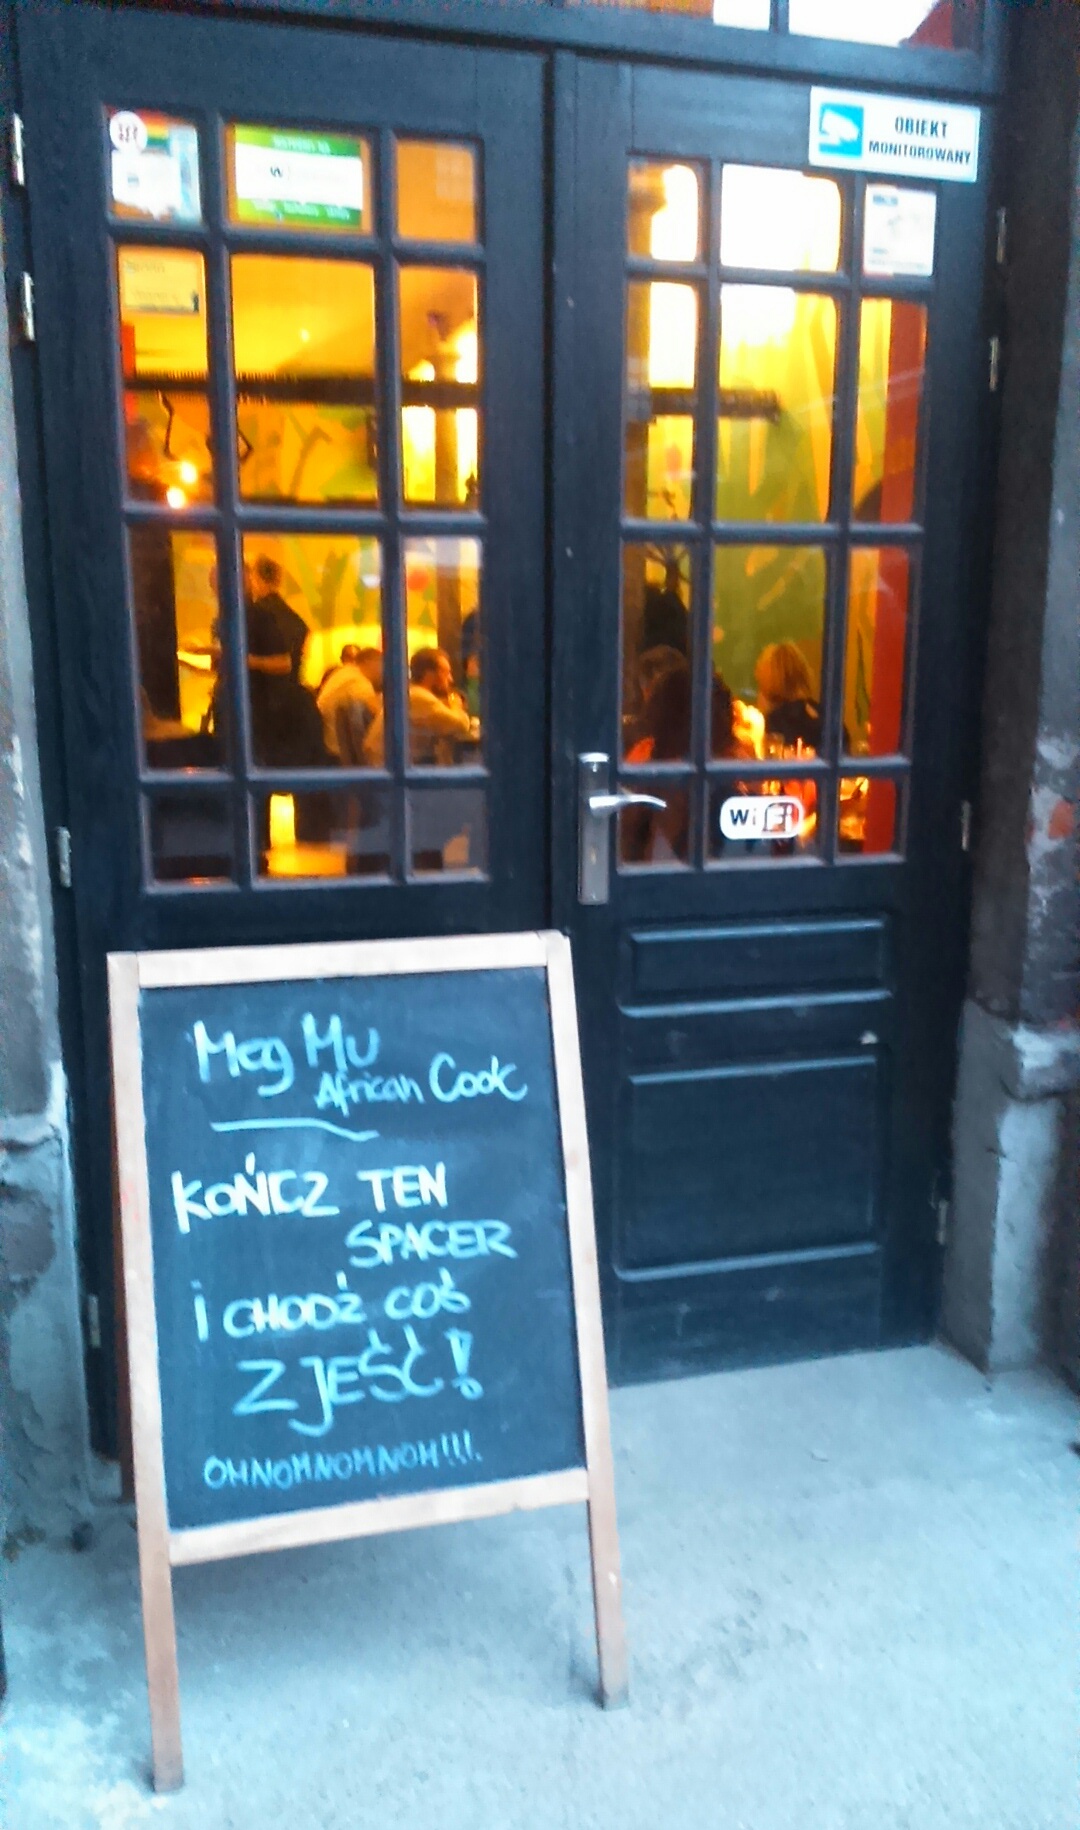 OBIEKT
MONITOROWANY
WiFi
Meg Mu
African Cook
KOŃCZ TEN
SPACER
i CHODŹ COŚ
ZJEŚĆ!
OMNOMNOMNOM!!!.